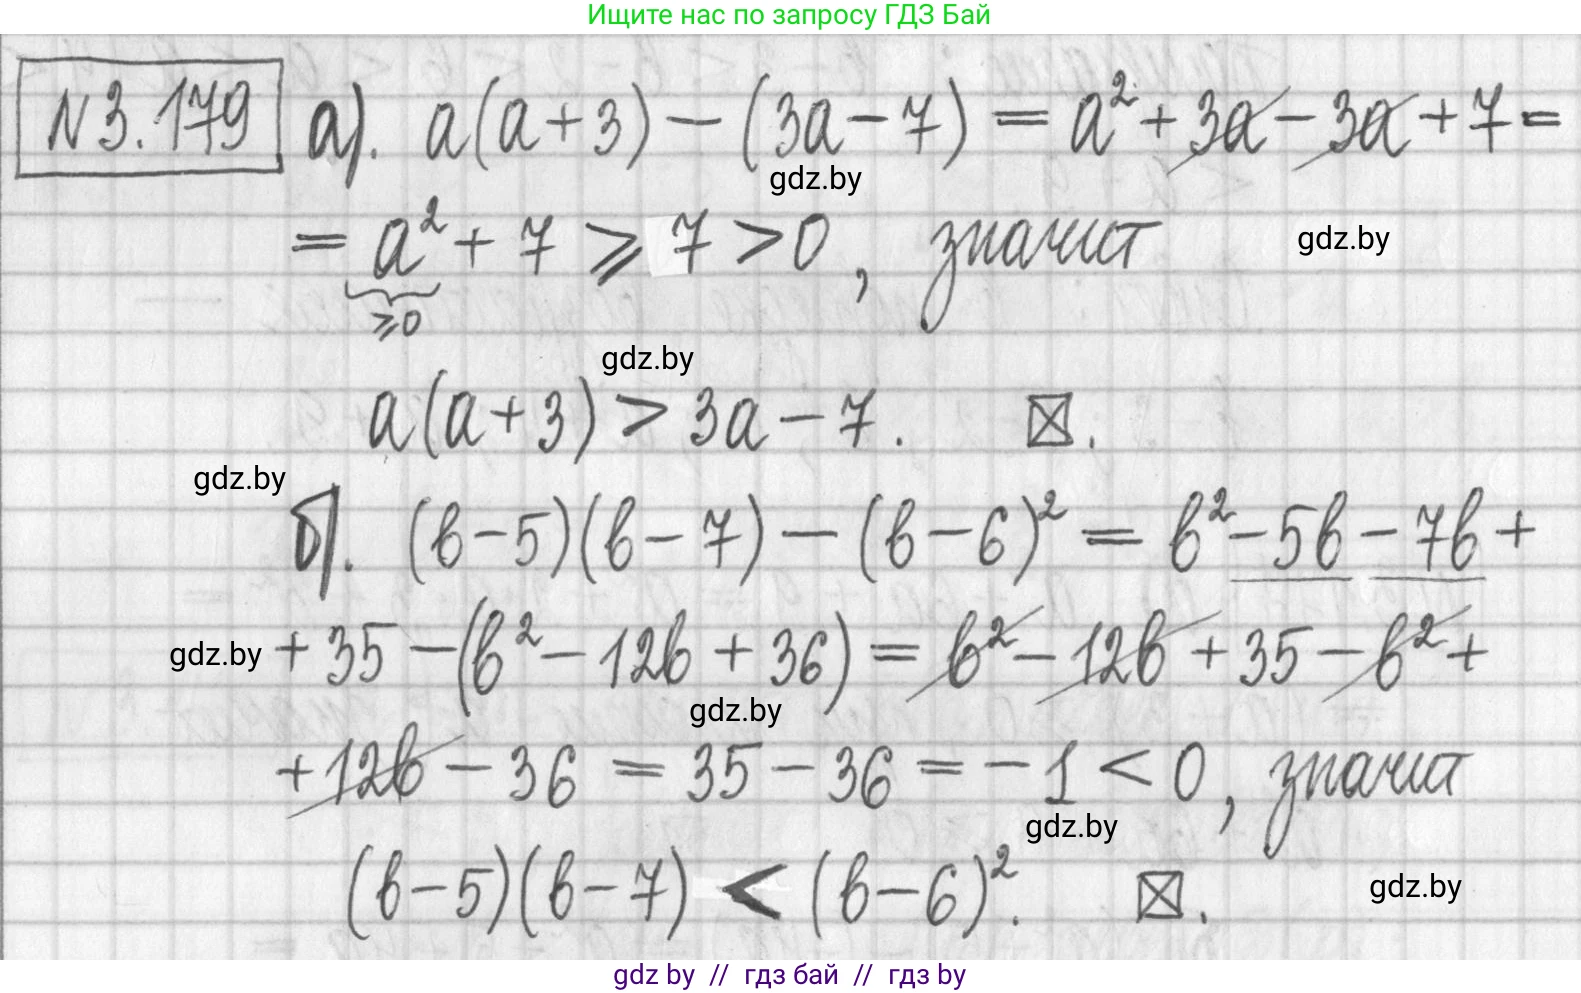 Ищите нас по запросу ГДЗ Бай
N 3.179 а). a(a+3) − (3a−7) = a² + 3a − 3a + 7 =
gdz.by
= a² + 7 ⩾ 7 > 0, значит
gdz.by
⩾0
gdz.by
a(a+3) > 3a − 7. ⊠.
gdz.by
б). (b−5)(b−7) − (b−6)² = b² − 5b − 7b +
gdz.by + 35 − (b² − 12b + 36) = b² − 12b + 35 − b² +
gdz.by
+ 12b − 36 = 35 − 36 = −1 < 0, значит
gdz.by
(b−5)(b−7) < (b−6)². ⊠.
gdz.by
gdz by // гдз бай // гдз by